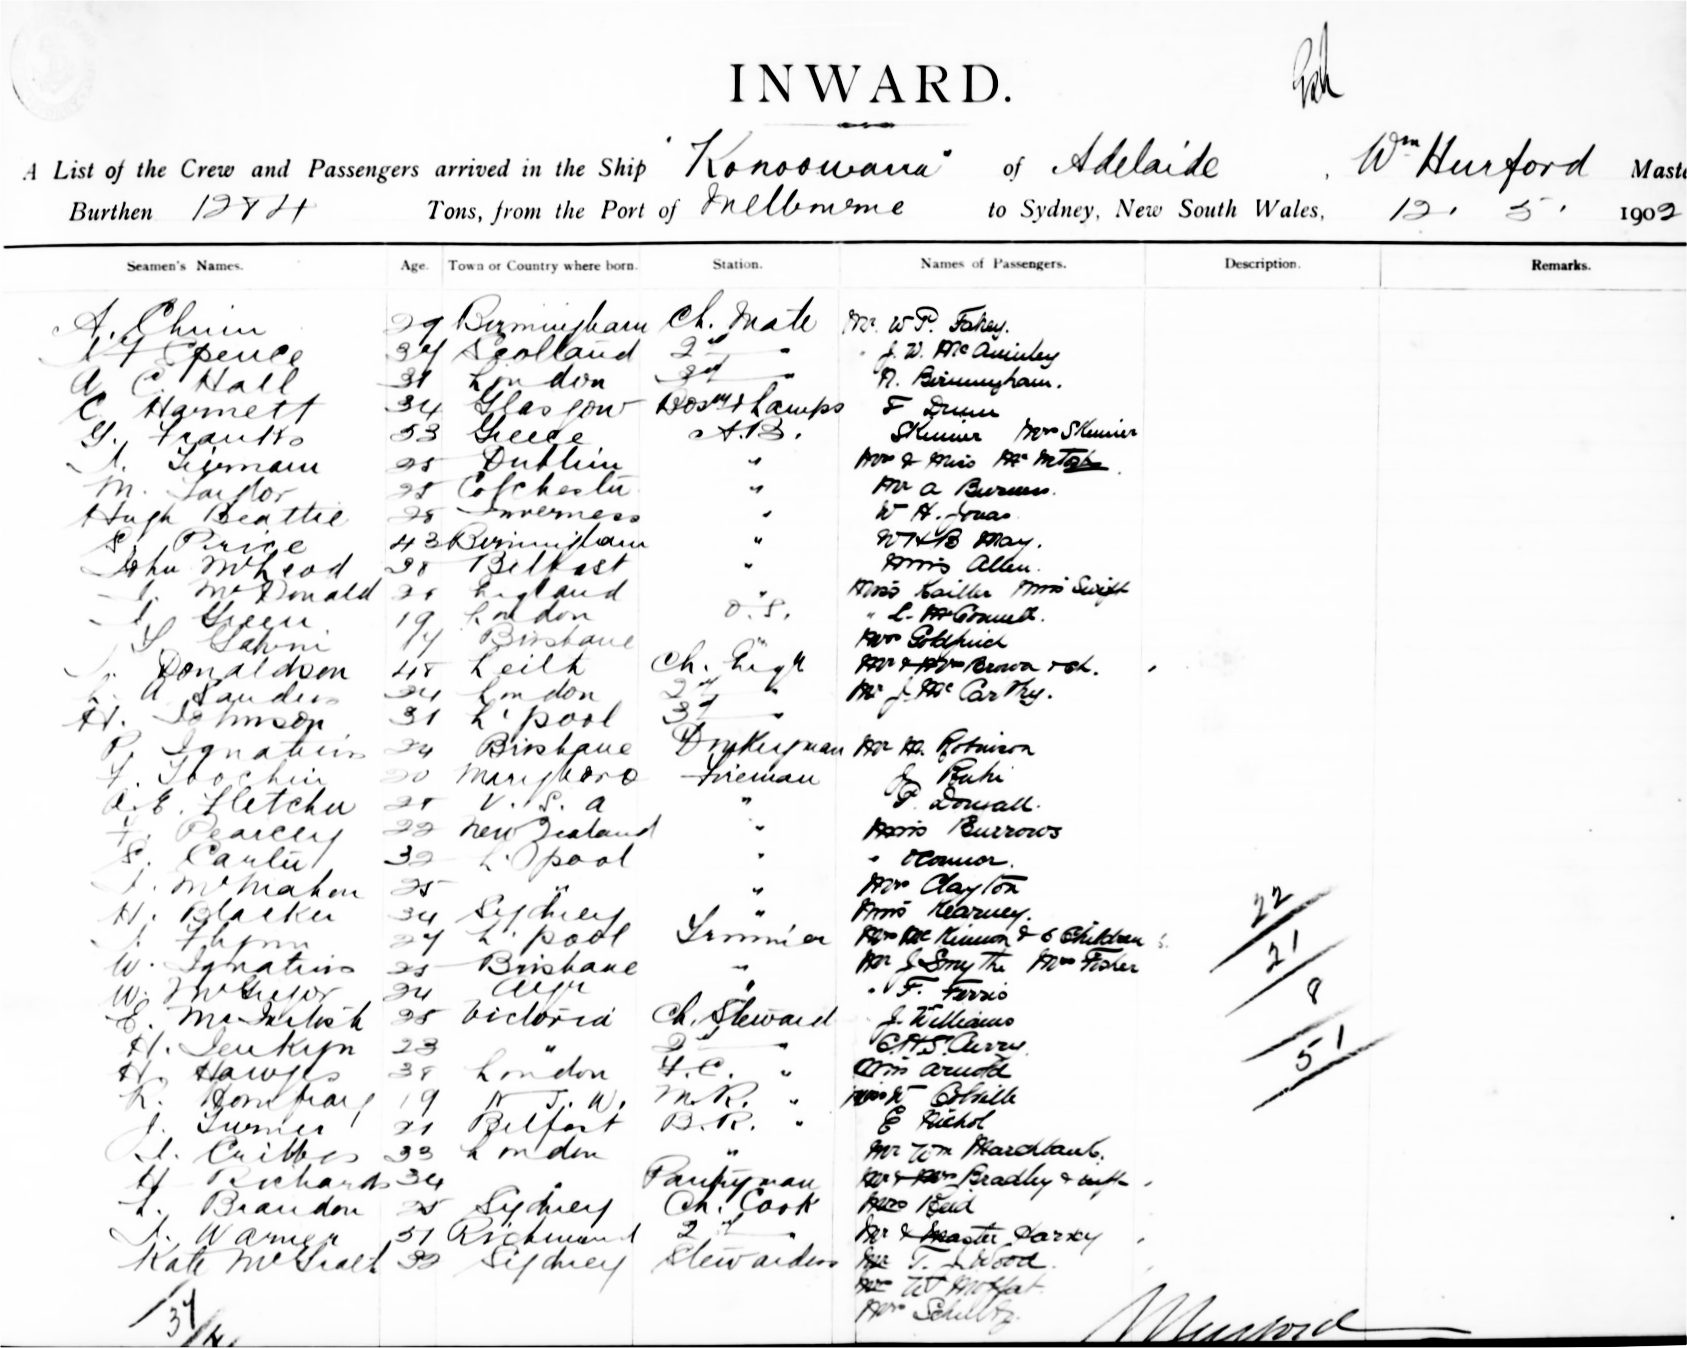 INWARD.
A List of the Crew and Passengers arrived in the Ship "Konoowarra" of Adelaide, Wm Hurford Maste
Burthen 1284 Tons, from the Port of Melbourne to Sydney, New South Wales, 12. 5. 1902
Seamen's Names. Age. Town or Country where born. Station. Names of Passengers. Description. Remarks.
A. 29 Birmingham Ch. Mate Mr. W P. Fahey.
Spence 37 Scotland 2nd " " J. W.
A C. Hall 31 London 3rd " A. Birmingham.
C Harnett 34 Glasgow Bosn & Lamps F Dunn
G. Franks 53 Greece A.B. Skinner Mrs Skinner
25 Dublin " Mrs & Miss McIntosh
M. Taylor 25 Colchester " Mr A
Hugh Beattie 28 Inverness " W H. Jonas
S. Price 43 Birmingham " W H B May.
John McLeod 28 Belfast " Miss Allen.
McDonald 28 England " Miss Miss Swift
Green 19 London O.S. " L.
17 Brisbane " Mrs Goldfinch
Donaldson 48 Leith Ch. Engr Mr & Mrs Brown & ch.
A Sanders 24 London 2nd " Mr J. McCarthy.
H. Johnson 31 L'pool 3rd "
P. Ignatius 24 Brisbane Donkeyman Mr Robinson
F. 20 Maryboro Fireman J
A. E. Fletcher 28 U. S. A " P.
F. Pearcey 22 New Zealand " Miss Burrows
S. Carter 32 L'pool " " OConnor.
McMahon 25 " " Mrs Clayton
H. Blacker 34 Sydney " Miss Kearney.
Flynn 27 L'pool Trimmer Mrs McKinnon & 6 Children
W. Ignatius 25 Brisbane " Mr J Smythe Mrs Fisher
W. McGregor 24 Ayr " " F. Ferris
E. McIntosh 28 Victoria Ch. Steward J. Williams
H. Jenkyn 23 " 2 " C.H.S. Curry
H. Hawges 38 London F.C. " Miss Arnold
19 N. S. W. M.R. " Colville
J. Turner 21 Belfast B.R. " E Nichol
Cribbes 33 London " Mr Wm Marchbank.
H Richards 34 " Pantryman Mr & Mrs Bradley & inft
Brandon 25 Sydney Ch. Cook Reid
Warner 51 Richmond 2nd " Mr & Master
Kate McGrath 32 Sydney Stewardess Mr T. J. Wood.
W Moffat.
Mrs Schultz.
22
21
8
51
37